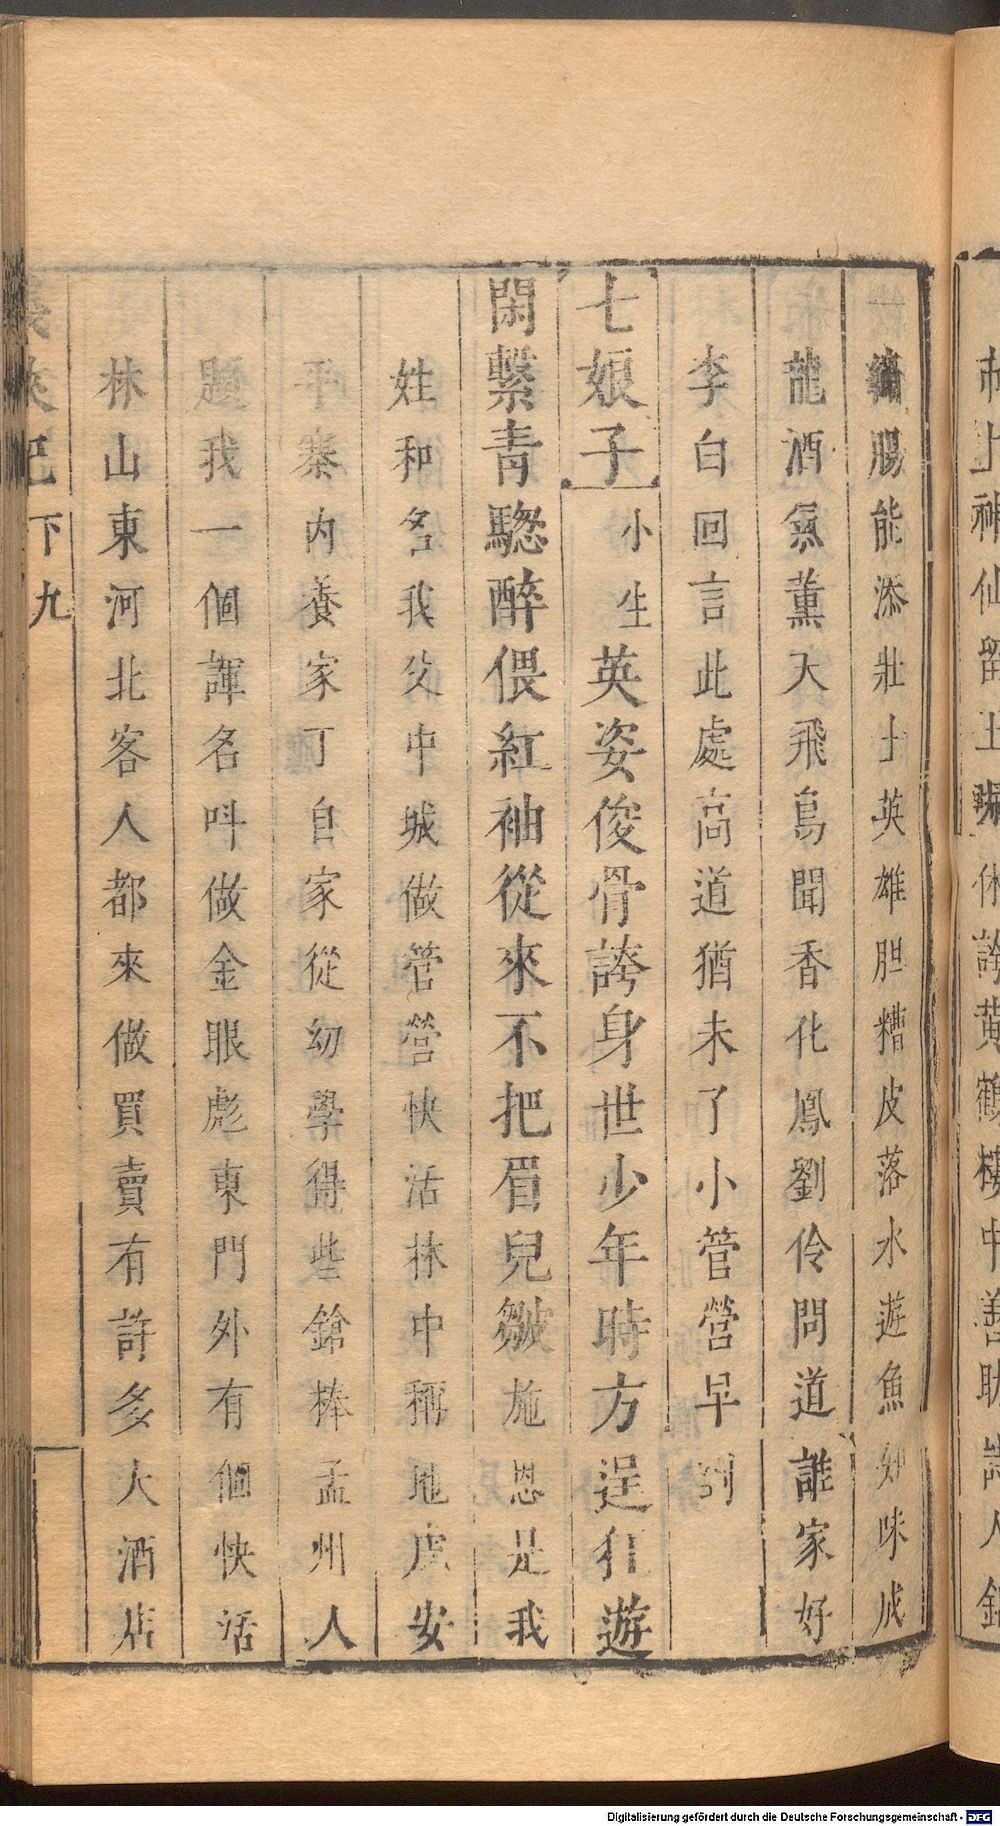 繡腸能添壯士英雄胆糟皮落水遊魚知味成
龍酒氣薰天飛鳥聞香化鳳劉伶問道誰家好
李白回言此處高道猶未了小管營早到
七娘子小生英姿俊骨誇身世少年時方逞狂遊
閑繫青驄醉偎紅袖從來不把眉兒皺施恩是我
姓和名我父中城做管營快活林中稱地虎安
平寨內養家丁自家從幼學得些鎗棒孟州人
題我一個諢名呌做金眼彪東門外有個快活
林山東河北客人都來做買賣有許多大酒店
義俠記下九
Digitalisierung gefördert durch die Deutsche Forschungsgemeinschaft - DFG